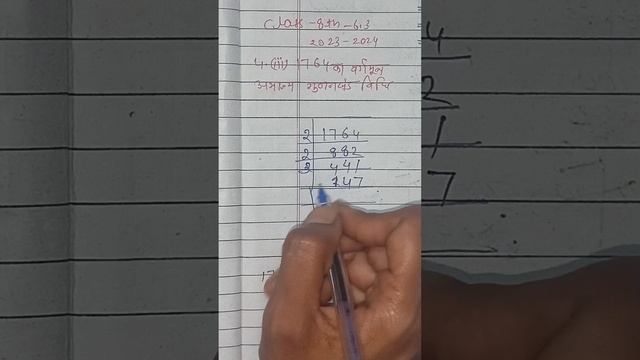 Class - 8th - 6.3
2023 - 2024
4. (ii) 1764 का वर्गमूल
अभाज्य गुणनखंड विधि
2 | 1764
2 | 882
3 | 441
147